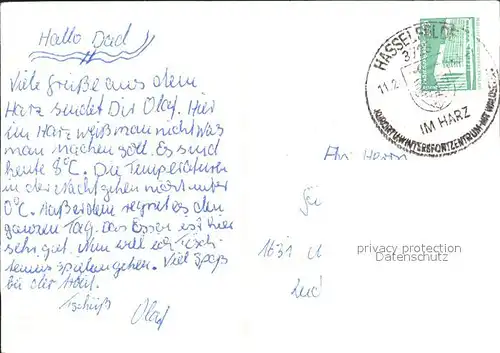 Hallo Dad
Viele Grüße aus dem
Harz sendet Dir Olaf. Hier
im Harz weiß man nicht was
man machen soll. Es sind
heute 8°C. Die Temperaturen
in der Nacht gehen nicht unter
0°C. Außerdem regnet es den
ganzen Tag. Das Essen ist hier
sehr gut. Nun will ich Tisch-
tennis spielen gehen. Viel Spaß
bei der Arbeit.
Tschüß
Olaf
HASSELFELDE
11.2
IM HARZ
KURORT U. WINTERSPORTZENTRUM
Herrn
1631
privacy protection
Datenschutz